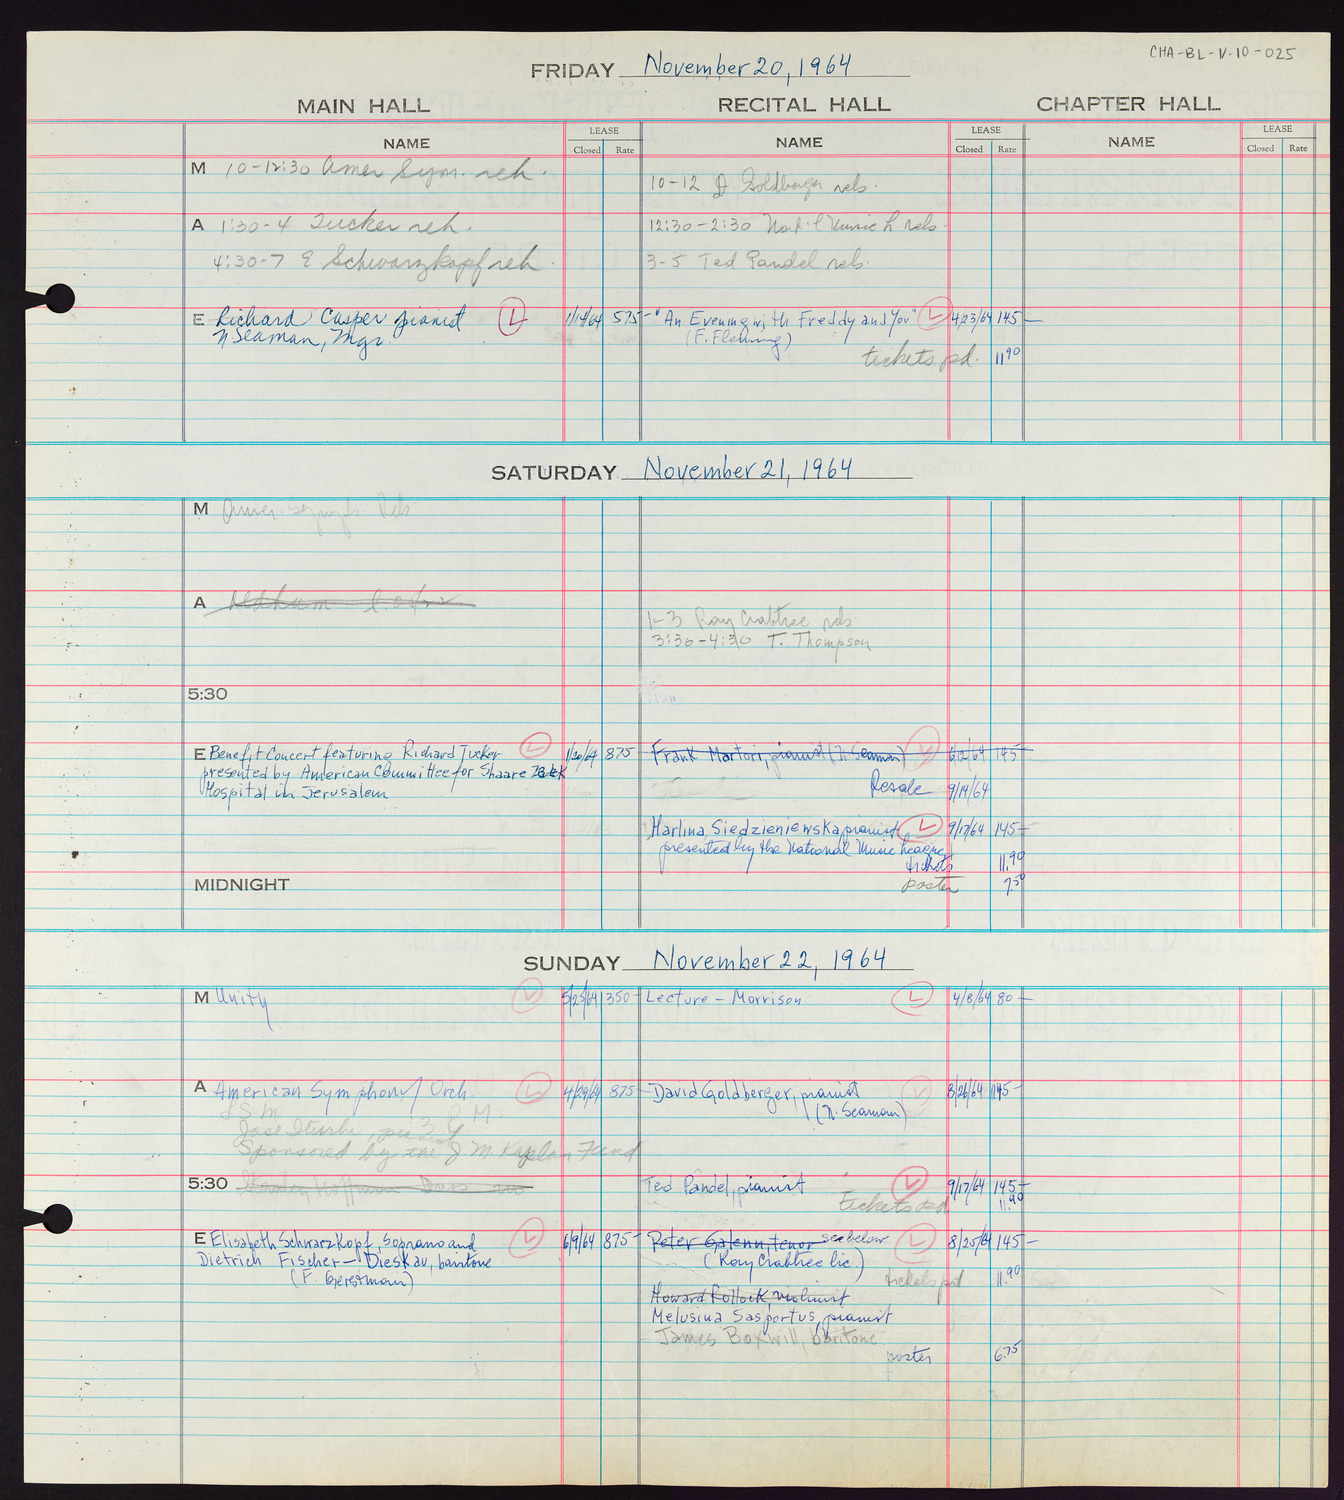 CHA-BL-V.10-025
FRIDAY November 20, 1964
MAIN HALL RECITAL HALL CHAPTER HALL
NAME LEASE Closed Rate NAME LEASE Closed Rate NAME LEASE Closed Rate
M 10-12:30 Amer Sym. reh.
10-12 D. Goldberger rehs.
A 1:30-4 Tucker reh.
12:30-2:30 Nat'l Music L. rehs.
4:30-7 E. Schwarzkopf reh
3-5 Ted Pandel rehs.
E Richard Casper pianist L 1/14/64 575-
N Seaman, Mgr.
"An Evening with Freddy and You" L 4/23/64 145-
(F. Fleming)
tickets pd. 11 90
SATURDAY November 21, 1964
M Amer. Symph. Rehs
A
1-3 Ray Crabtree rehs
3:30-4:30 T. Thompson
5:30
E Benefit Concert featuring Richard Tucker L 1/20/64 875
presented by American Committee for Shaare Zedek
Hospital in Jerusalem
Frank Martori, pianist (N. Seaman) L 6/12/64 145
Resale 9/14/64
Harlina Siedzieniewska pianist L 9/17/64 145-
presented by the National Music League
tickets 11.90
poster 7.50
MIDNIGHT
SUNDAY November 22, 1964
M Unity L 5/25/64 350-
Lecture - Morrison L 4/8/64 80-
A American Symphony Orch. L 4/29/64 875-
Jose Iturbi, pianist
Sponsored by the J M. Kaplan Fund
David Goldberger, pianist L 8/26/64 145-
(N. Seaman)
5:30
Ted Pandel, pianist L 9/17/64 145-
tickets pd. 11.90
E Elisabeth Schwarzkopf, soprano and L 6/9/64 875-
Dietrich Fischer-Dieskau, baritone
Peter Galenn, tenor see below L 8/25/64 145-
(Ray Crabtree lic.)
tickets pd 11.90
Howard Rollock, violinist
Melusina Sasportus, pianist
James Boxwill, baritone
poster 6.75